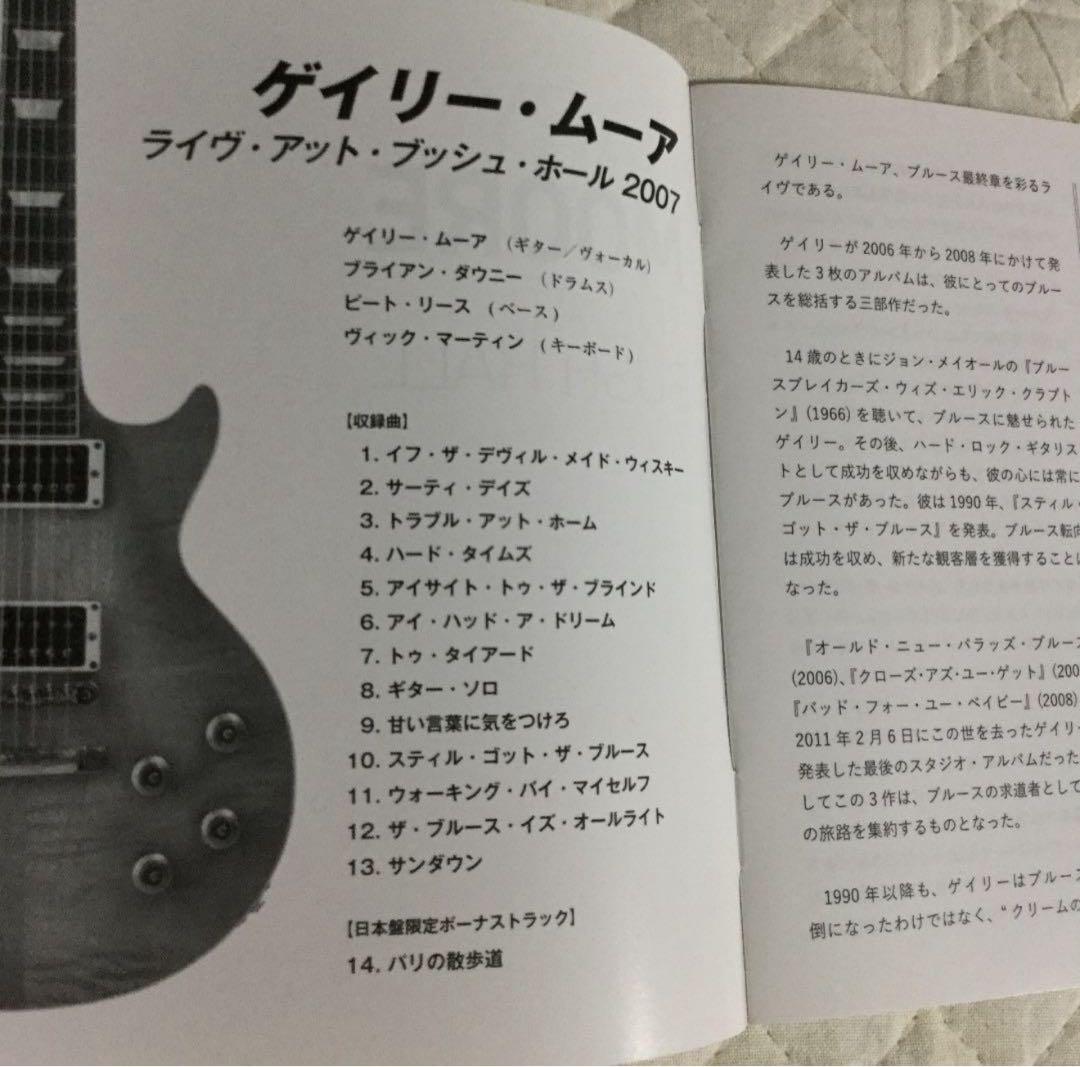 ゲイリー・ムーア
ライヴ・アット・ブッシュ・ホール 2007
ゲイリー・ムーア (ギター/ヴォーカル)
ブライアン・ダウニー (ドラムス)
ピート・リース (ベース)
ヴィック・マーティン (キーボード)
【収録曲】
1. イフ・ザ・デヴィル・メイド・ウィスキー
2. サーティ・デイズ
3. トラブル・アット・ホーム
4. ハード・タイムズ
5. アイサイト・トゥ・ザ・ブラインド
6. アイ・ハッド・ア・ドリーム
7. トゥ・タイアード
8. ギター・ソロ
9. 甘い言葉に気をつけろ
10. スティル・ゴット・ザ・ブルース
11. ウォーキング・バイ・マイセルフ
12. ザ・ブルース・イズ・オールライト
13. サンダウン
【日本盤限定ボーナストラック】
14. パリの散歩道
ゲイリー・ムーア、ブルース最終章を彩るラ
イヴである。
ゲイリーが 2006 年から 2008 年にかけて発
表した 3 枚のアルバムは、彼にとってのブルー
スを総括する三部作だった。
14 歳のときにジョン・メイオールの『ブルー
スブレイカーズ・ウィズ・エリック・クラプト
ン』(1966) を聴いて、ブルースに魅せられた
ゲイリー。その後、ハード・ロック・ギタリス
トとして成功を収めながらも、彼の心には常に
ブルースがあった。彼は 1990 年、『スティル・
ゴット・ザ・ブルース』を発表。ブルース転向
は成功を収め、新たな観客層を獲得することに
なった。
『オールド・ニュー・バラッズ・ブルース
(2006)、『クローズ・アズ・ユー・ゲット』(200
『バッド・フォー・ユー・ベイビー』(2008)
2011 年 2 月 6 日にこの世を去ったゲイリー
発表した最後のスタジオ・アルバムだった
してこの 3 作は、ブルースの求道者として
の旅路を集約するものとなった。
1990 年以降も、ゲイリーはブルース
倒になったわけではなく、“クリームの